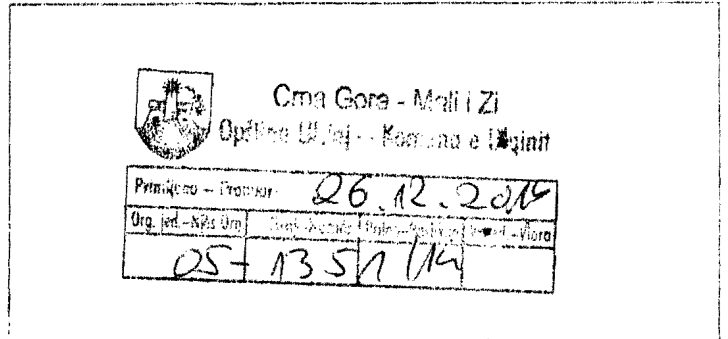 Crna Gora - Mali i Zi
Opština Ulcinj - Komuna e Ulqinit
Primljeno – Pranuar: 26.12.2014
Org. jed. – Njës. Org
05- 1351/14